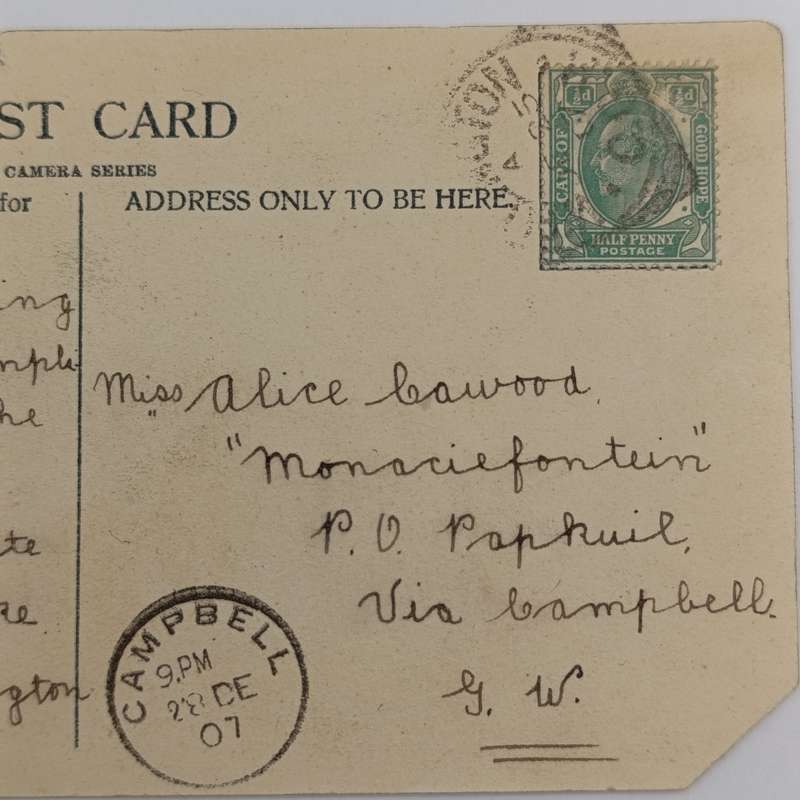 ST CARD
CAMERA SERIES
for
ADDRESS ONLY TO BE HERE.
½d ½d
CAPE OF GOOD HOPE
HALF PENNY
POSTAGE
ing
he
te
gton
Miss Alice Cawood,
"Monaciefontein"
P. O. Papkuil,
Via Campbell.
G. W.
CAMPBELL
9.PM
28 DE
07